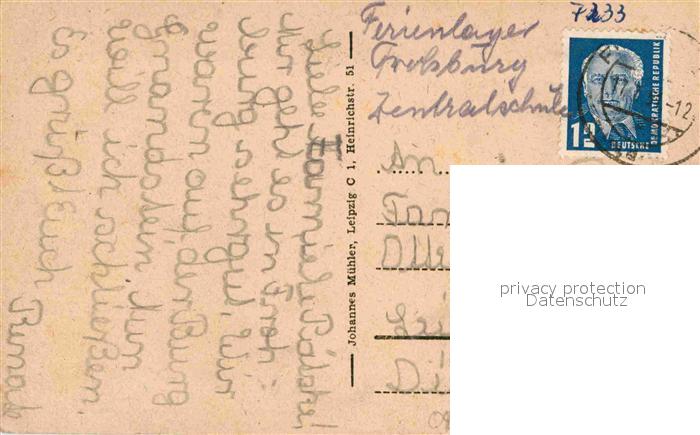 7233
Ferienlager
Frohburg
Zentralschule
DEUTSCHE
DEMOKRATISCHE REPUBLIK
12
-12
Liebe Familie
Mir geht es in Froh-
burg sehr gut. Wir
waren auf der Burg
Gnandstein. Nun
will ich schließen.
Es grüßt Euch
Johannes Mühler, Leipzig C 1, Heinrichstr. 51
An
Fam
Lei
privacy protection
Datenschutz